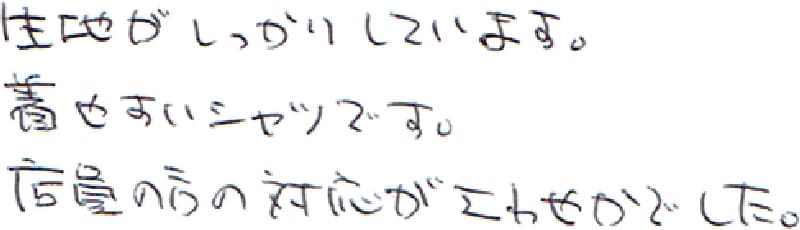 生地がしっかりしています。
着やすいシャツです。
店員の方の対応がこわせかでした。